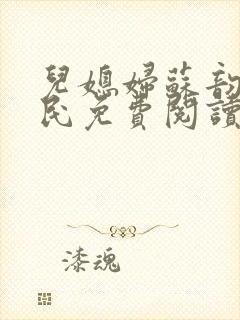 兒媳婦蘇韵
民免費閱讀
漆魂